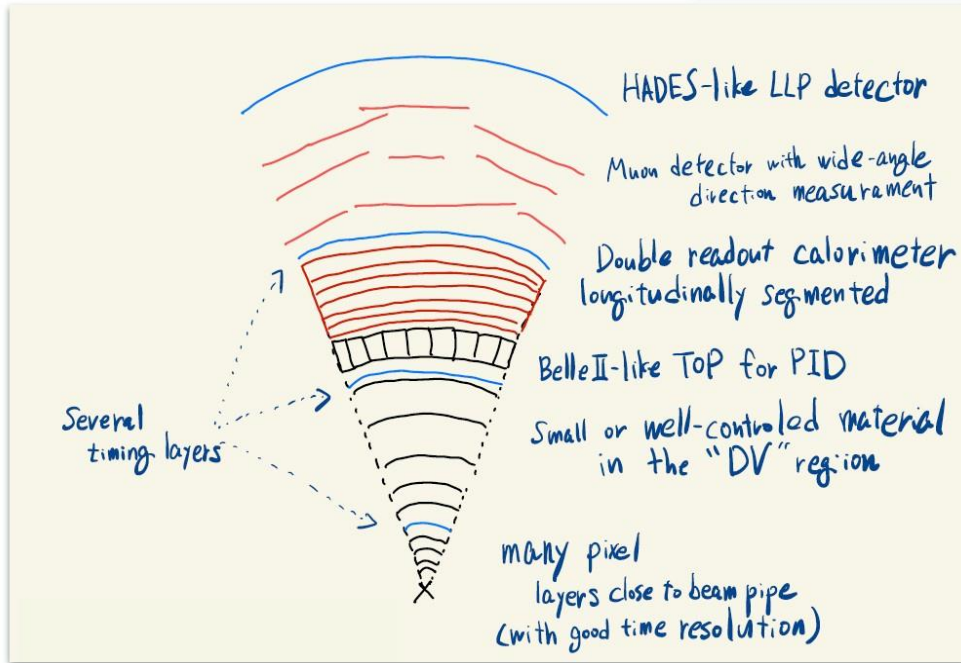 HADES-like LLP detector
Muon detector with wide-angle
direction measurament
Double readout calorimeter
longitudinally segmented
Belle II-like TOP for PID
Several
timing layers
Small or well-controled material
in the "DV" region
many pixel
layers close to beam pipe
(with good time resolution)